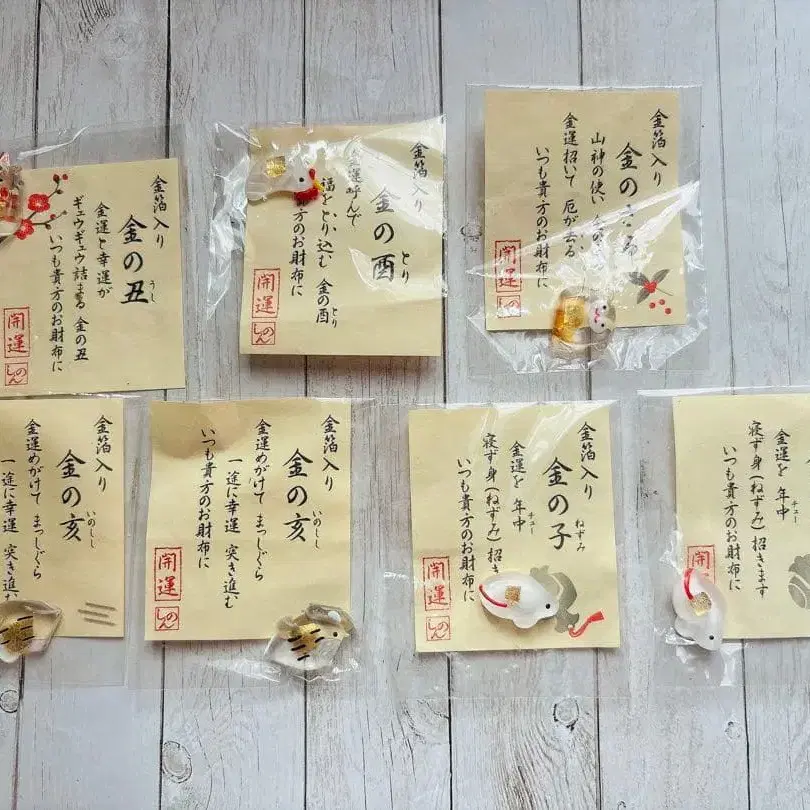 金箔入り
金の丑
うし
金運と幸運が
ギュウギュウ詰まる 金の丑
いつも貴方のお財布に
開運
金箔入り
金の酉
とり
運呼んで
福をとり込む 金の酉
とり
方のお財布に
開運
金箔入り
金の
山神の使い
金運招いて 厄が去る
いつも貴方のお財布に
開運
金箔入り
金の亥
いのしし
金運めがけて まっしぐら
一途に幸運 突き進
金箔入り
金の亥
いのしし
金運めがけて まっしぐら
一途に幸運 突き進む
いつも貴方のお財布に
開運
金箔入り
金の子
ねずみ
金運を 年中
チュー
寝ず身(ねずみ) 招き
いつも貴方のお財布に
開運
金箔入り
金運を 年中
チュー
寝ず身(ねずみ) 招きます
いつも貴方のお財布に
開運